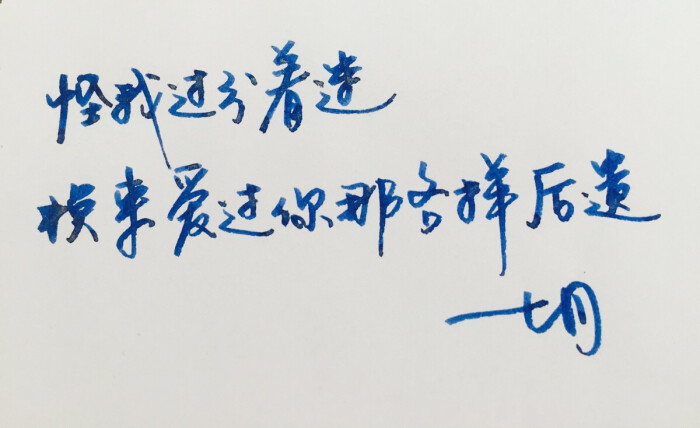 怪我过分着迷
换来爱过你那各样后遗
七月